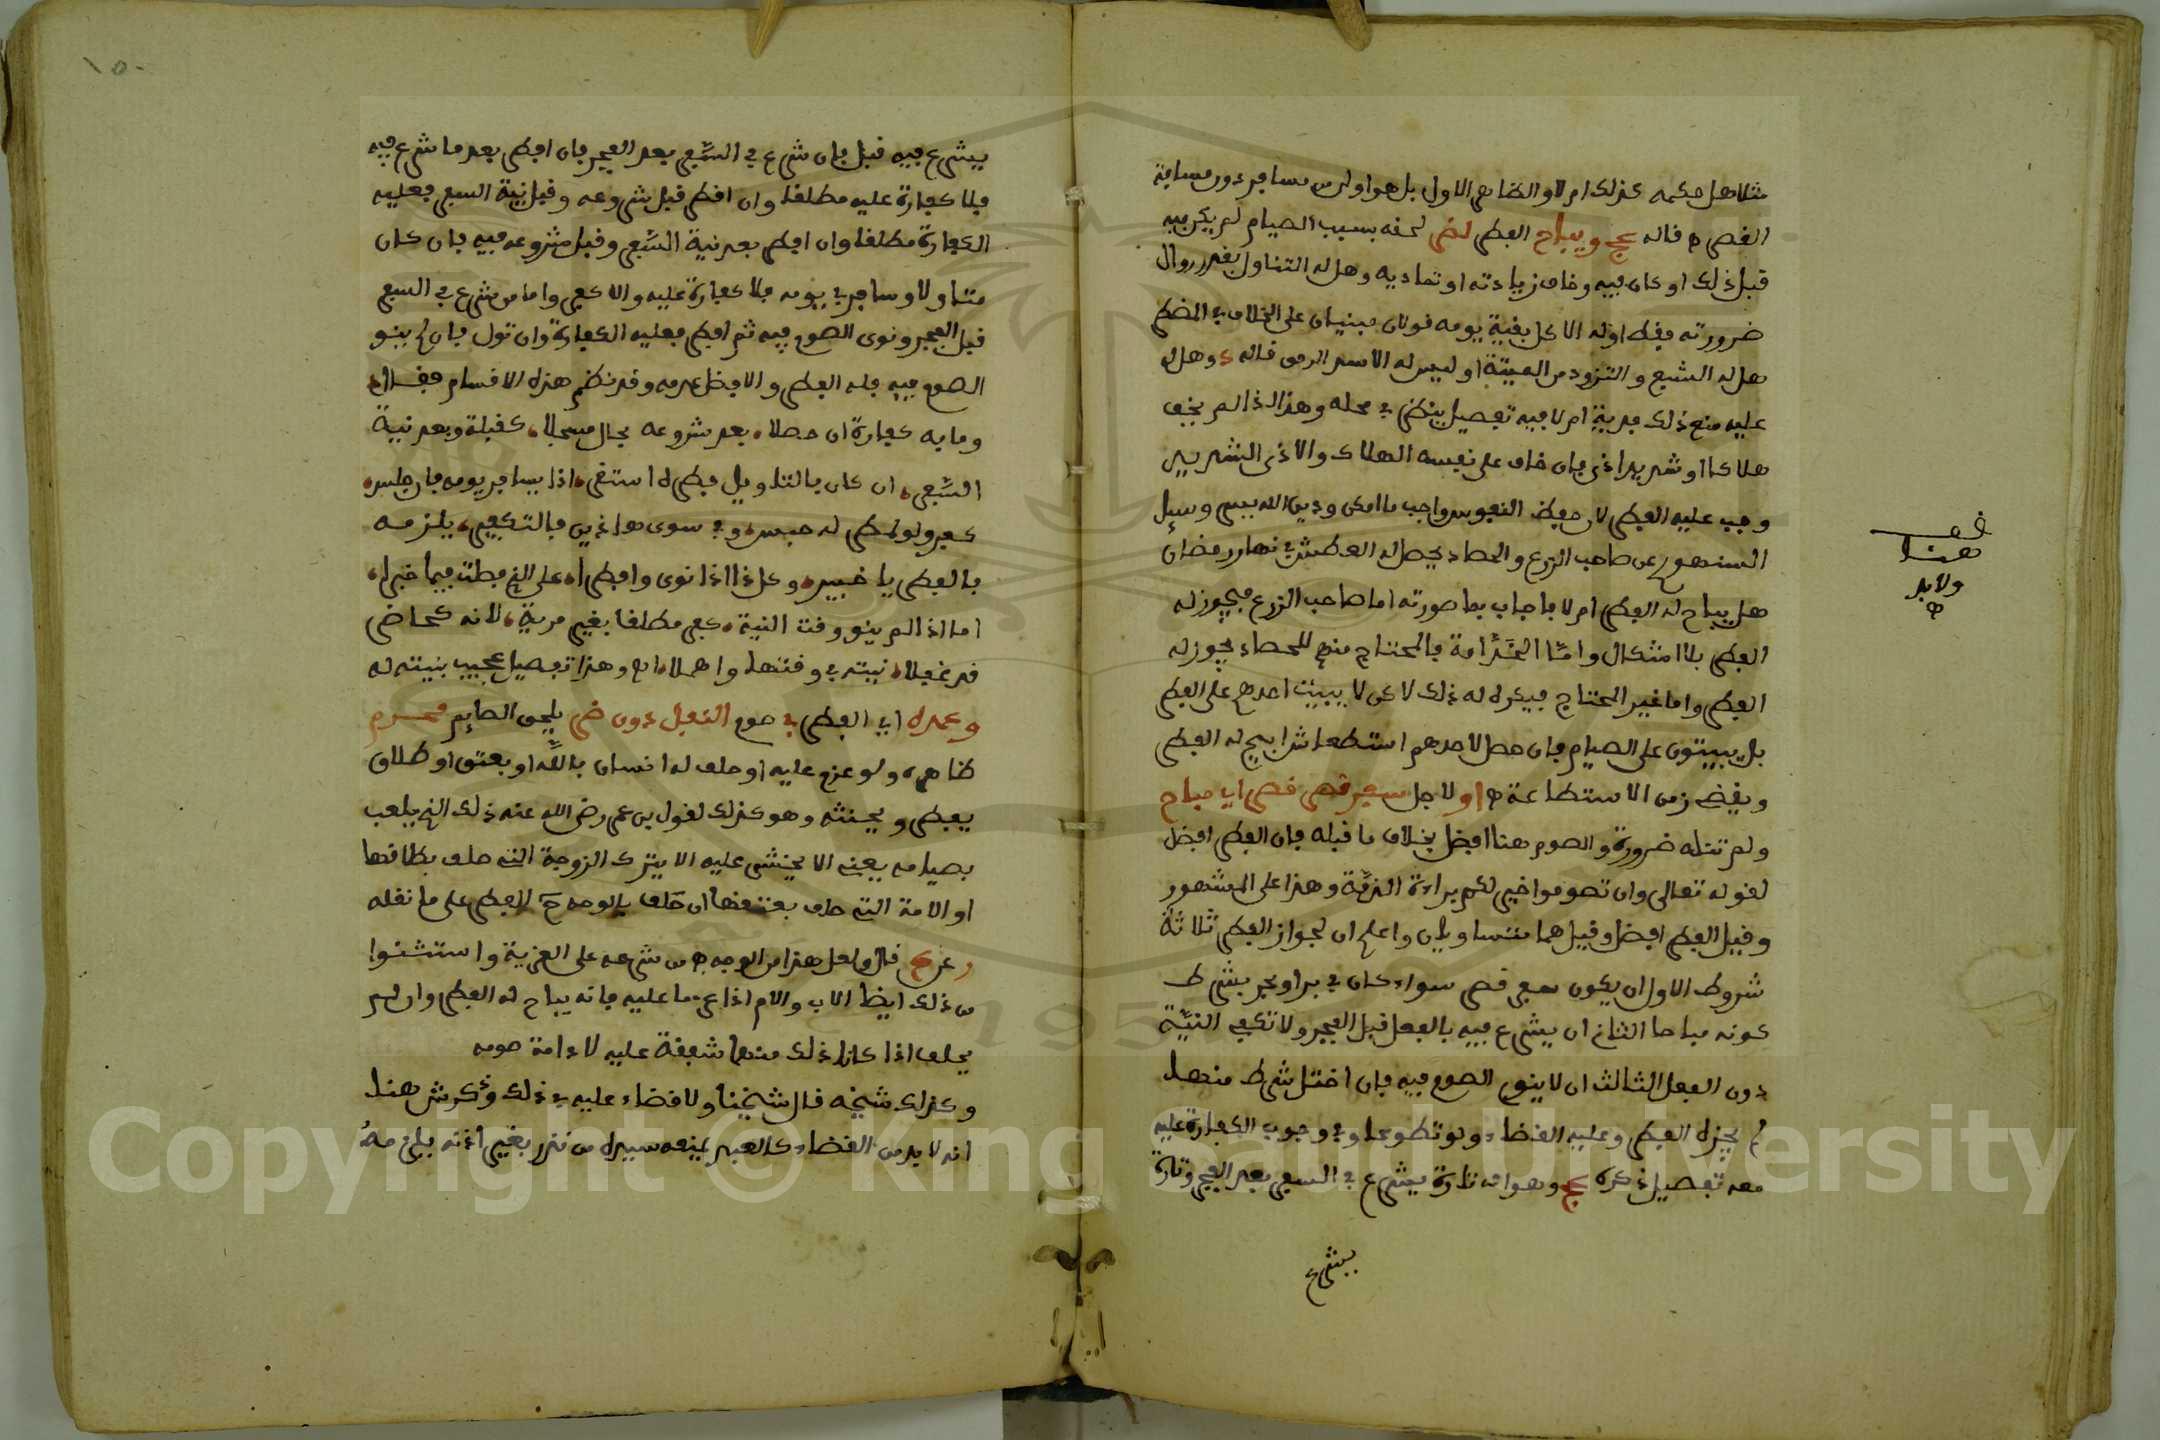 مثلا هل حكمه كذلك ام لا والظاهر الاول بل هو اولى من مسافر دون مسافة
القصر ه قاله عج ويباح الفطر لضر لحقه بسبب الصيام لم يكن به
قبل ذلك او كان فيه وخاف زيادته او تماديه وهل له التناول بقدر زوال
ضرورته فقط او له الاكل بقية يومه قولان مبنيان على الخلاف في المضطر
هل له الشبع والتزود من الميتة او ليس له الا سد الرمق قاله وهل له
عليه منع ذلك فدية ام لا فيه تفصيل ينظر في محله وهذا اذا لم يخف
هلاكا او شديد اذى فان خاف على نفسه الهلاك والاذى الشديد
وجب عليه الفطر لان حفظ النفوس واجب ما امكن ودين الله يسر وسئل
السنهوري عن صاحب الزرع والحصاد يحصل له العطش في نهار رمضان
هل يباح له الفطر ام لا فاجاب بما صورته اما صاحب الزرع فيجوز له
الفطر بلا اشكال واما الخدامة فالمحتاج منهم للحصاد يجوز له
الفطر واما غير المحتاج فيكره له ذلك لاكن لا يبيت احدهم على الفطر
بل يبيتون على الصيام فان حصل لاحدهم استطعاشا ابيح له الفطر
ويقضي زمن الاستطاعة ه او لاجل سفر قصر قصر اي مباح
ولم تنله ضرورة والصوم هنا افضل بخلاف ما قبله فان الفطر افضل
لقوله تعالى وان تصوموا خير لكم براءة الذمة وهذا على المشهور
وقيل الفطر افضل وقيل هما متساويان واعلم ان لجواز الفطر ثلاثة
شروط الاول ان يكون سفر قصر سواء كان في بر او بحر بشرط
كونه مباحا الثاني ان يشرع فيه بالفعل قبل الفجر ولا تكفي النية
دون الفعل الثالث ان لا ينوي الصوم فيه فان اختل شرط منها
لم يجز له الفطر وعليه القضاء ولو تطوعا وفي وجوب الكفارة عليه
معه تفصيل ذكره عج وهو انه تارة يشرع في السفر بعد الفجر وتارة
يشرع
قف
هنا
ولابد
ه
١٥٠
يشرع فيه قبل فان شرع في السفر بعد الفجر فان افطر بعد ما شرع فيه
فلا كفارة عليه مطلقا وان افطر قبل شروعه وقبل نية السفر فعليه
الكفارة مطلقا وان افطر بعد نية السفر وقبل شروعه فيه فان كان
متاولا وسافر في يومه فلا كفارة عليه والا كفر واما من شرع في السفر
قبل الفجر ونوى الصوم فيه ثم افطر فعليه الكفارة وان تول فان لم ينو
الصوم فيه فله الفطر والافضل عدمه وقد نظم هذه الاقسام فقال
وما به كفارة ان حصلا بعد شروعه بحال مسجلا كقبله وبعد نية
السفر ان كان بالتاويل فطره استقر اذا يسافر يومه فان جلس
كفر ولو لفطر له حبس وفي سوى هاذين فالتكفير يلزمه
بالفطر يا خبير وكذا اذا نوى وافطرا على الذي فطت فيما خبرا
اما اذا لم ينو وقت النية كفر مطلقا بغير مرية لانه كحاضر
قد غفلا نيته في وقتها واهملا اه وهذا تفصيل عجيب بنيته له
وعمده اي الفطر في صوم النفل دون ضر يلحق الصائم محرم
ظاهره ولو عزم عليه او حلف له انسان بالله او بعتق او طلاق
يفطر ويحنثه وهو كذلك لقول بن عمر رضي الله عنه ذلك الذي يلعب
بصيامه يعني الا يخشى عليه الا يترك الزوجة التي حلف بطلاقها
او الامة التي حلف بعتقها ان حلف فالوجه ح الفطر على ما نقله
عج قال ولعل هذا من الوجه ه من شرحه على العزية واستثنوا
من ذلك ايضا الاب والام اذا عزما عليه فانه يباح له الفطر وان لم
يحلف اذا كان ذلك منهما شفقة عليه لادامة صومه
وكذلك شيخه قال شيخنا ولا قضاء عليه في ذلك وذكر ش هنا
انه لا بد من القضاء كالعبد يمنعه سيده من نذر بغير اذنه يلزمه